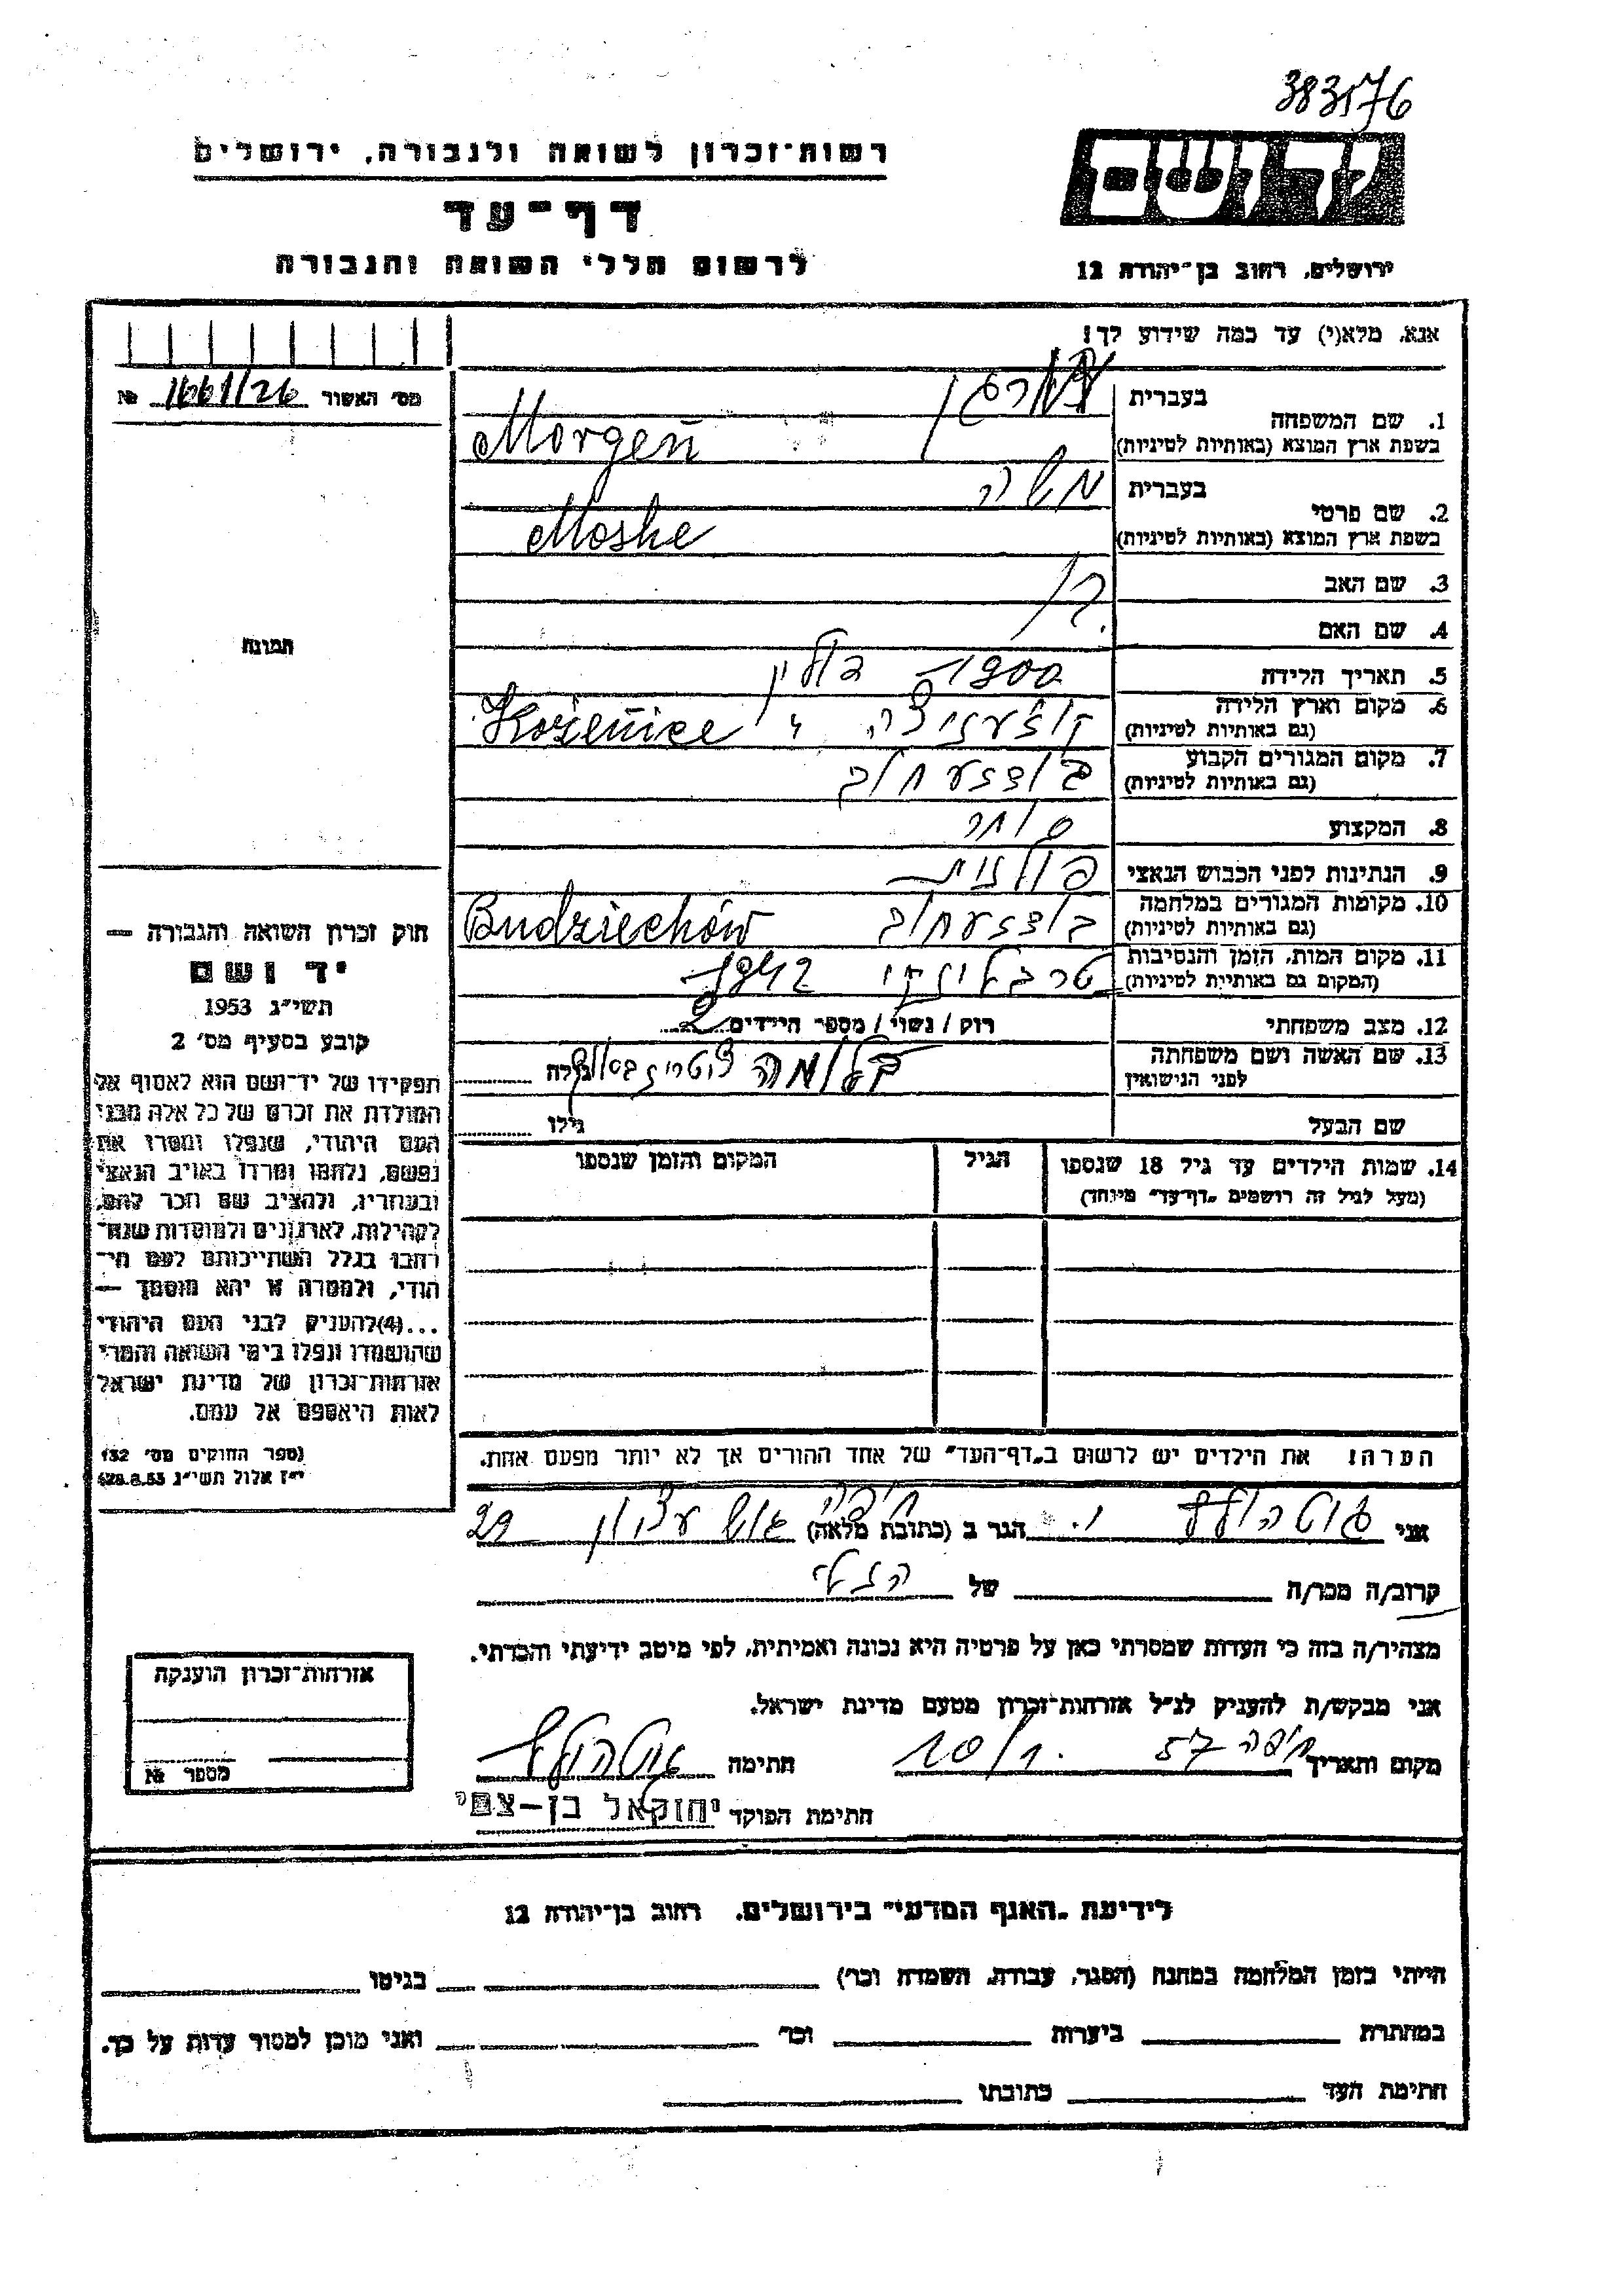 383576
רשות־זכרון לשואה ולגבורה, ירושלים
יד ושם
דף־עד
לרשום חללי השואה והגבורה
ירושלים, רחוב בן־יהודה 12
אנא, מלא(י) עד כמה שידוע לך!
מס׳ האשור 1661/26 №
1. שם המשפחה בעברית מורגן
בשפת ארץ המוצא (באותיות לטיניות) Morgen
2. שם פרטי בעברית משה
בשפת ארץ המוצא (באותיות לטיניות) Moshe
3. שם האב
4. שם האם
תמונה
5. תאריך הלידה 1900
6. מקום וארץ הלידה פולין
(גם באותיות לטיניות) קוזעניצה Koženice
7. מקום המגורים הקבוע
(גם באותיות לטיניות) בודזעחוב
8. המקצוע סוחר
9. הנתינות לפני הכבוש הנאצי פולנית
10. מקומות המגורים במלחמה
(גם באותיות לטיניות) בודזעחוב Budziechów
11. מקום המות, הזמן והנסיבות
(המקום גם באותיות לטיניות) טרבלינקי 1942
12. מצב משפחתי רוק / נשוי / מספר הילדים 2
13. שם האשה ושם משפחתה
לפני הנישואין בלומה גילה
שם הבעל גילו
14. שמות הילדים עד גיל 18 שנספו הגיל המקום והזמן שנספו
(מעל לגיל זה רושמים „דף־עד״ מיוחד)
חוק זכרון השואה והגבורה —
יד ושם
תשי״ג 1953
קובע בסעיף מס׳ 2
תפקידו של יד־ושם הוא לאסוף אל
המולדת את זכרם של כל אלה מבני
העם היהודי, שנפלו ומסרו את
נפשם, נלחמו ומרדו באויב הנאצי
ובעוזריו, ולהציב שם וזכר להם,
לקהילות, לארגונים ולמוסדות שנח־
רבו בגלל השתייכותם לעם הי־
הודי, ולמטרה זו יהא מוסמך —
...(4) להעניק לבני העם היהודי
שהושמדו ונפלו בימי השואה והמרי
אזרחות־זכרון של מדינת ישראל
לאות היאספם אל עמם.
(ספר החוקים מס׳ 132
י״ז אלול תשי״ג 28.8.53)
הערה: את הילדים יש לרשום ב„דף־העד״ של אחד ההורים אך לא יותר מפעם אחת.
אני גוטהולף י. הגר ב (כתובת מלאה) חיפה גוש עציון 29
קרוב/ה מכר/ה של הנ״ל
מצהיר/ה בזה כי העדות שמסרתי כאן על פרטיה היא נכונה ואמיתית, לפי מיטב ידיעתי והכרתי.
אני מבקש/ת להעניק לנ״ל אזרחות־זכרון מטעם מדינת ישראל.
מקום ותאריך חיפה 10/1.57 חתימה גוטהולף
חתימת הפוקד יחזקאל בן-צמי
אזרחות־זכרון הוענקה
מספר №
לידיעת „האגף המדעי״ בירושלים, רחוב בן־יהודה 12
הייתי בזמן המלחמה במחנה (הסגר, עבודה, השמדה וכו׳) בגיטו
במחתרת ביערות וכו׳ ואני מוכן למסור עדות על כך.
חתימת העד כתובתו